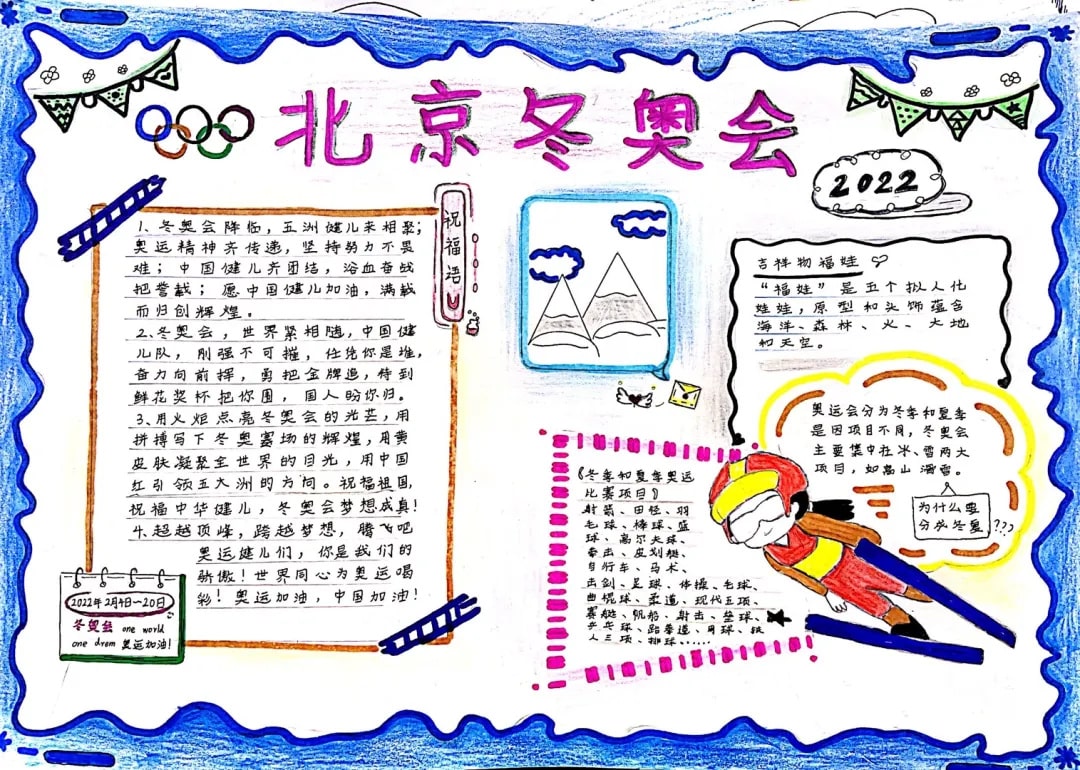 北京冬奥会
2022
祝福语
1、冬奥会降临，五洲健儿来相聚；
奥运精神齐传递，坚持努力不畏
难；中国健儿齐团结，浴血奋战
把誉载；愿中国健儿加油，满载
而归创辉煌。
2、冬奥会，世界紧相随，中国健
儿队，刚强不可摧，任凭你是谁，
奋力向前挥，勇把金牌追，待到
鲜花奖杯把你围，国人盼你归。
3、用火炬点亮冬奥会的光芒，用
拼搏写下冬奥赛场的辉煌，用黄
皮肤凝聚全世界的目光，用中国
红引领五大洲的方向。祝福祖国，
祝福中华健儿，冬奥会梦想成真！
4、超越顶峰，跨越梦想，腾飞吧
奥运健儿们，你是我们的
骄傲！世界同心为奥运喝
彩！奥运加油，中国加油！
2022年2月4日～20日
冬奥会 one world
one drem 奥运加油！
吉祥物福娃
“福娃”是五个拟人化
娃娃，原型和头饰蕴含
海洋、森林、火、大地
和天空。
奥运会分为冬季和夏季
是因项目不同，冬奥会
主要集中在冰、雪两大
项目，如高山滑雪。
为什么要
分成冬夏
???
《冬季和夏季奥运
比赛项目》
射箭、田径、羽
毛球、棒球、篮
球、高尔夫球、
拳击、皮划艇、
自行车、马术、
击剑、足球、体操、毛球、
曲棍球、柔道、现代五项、
赛艇、帆船、射击、垒球、
乒乓球、跆拳道、月球、铁
人三项、排球……